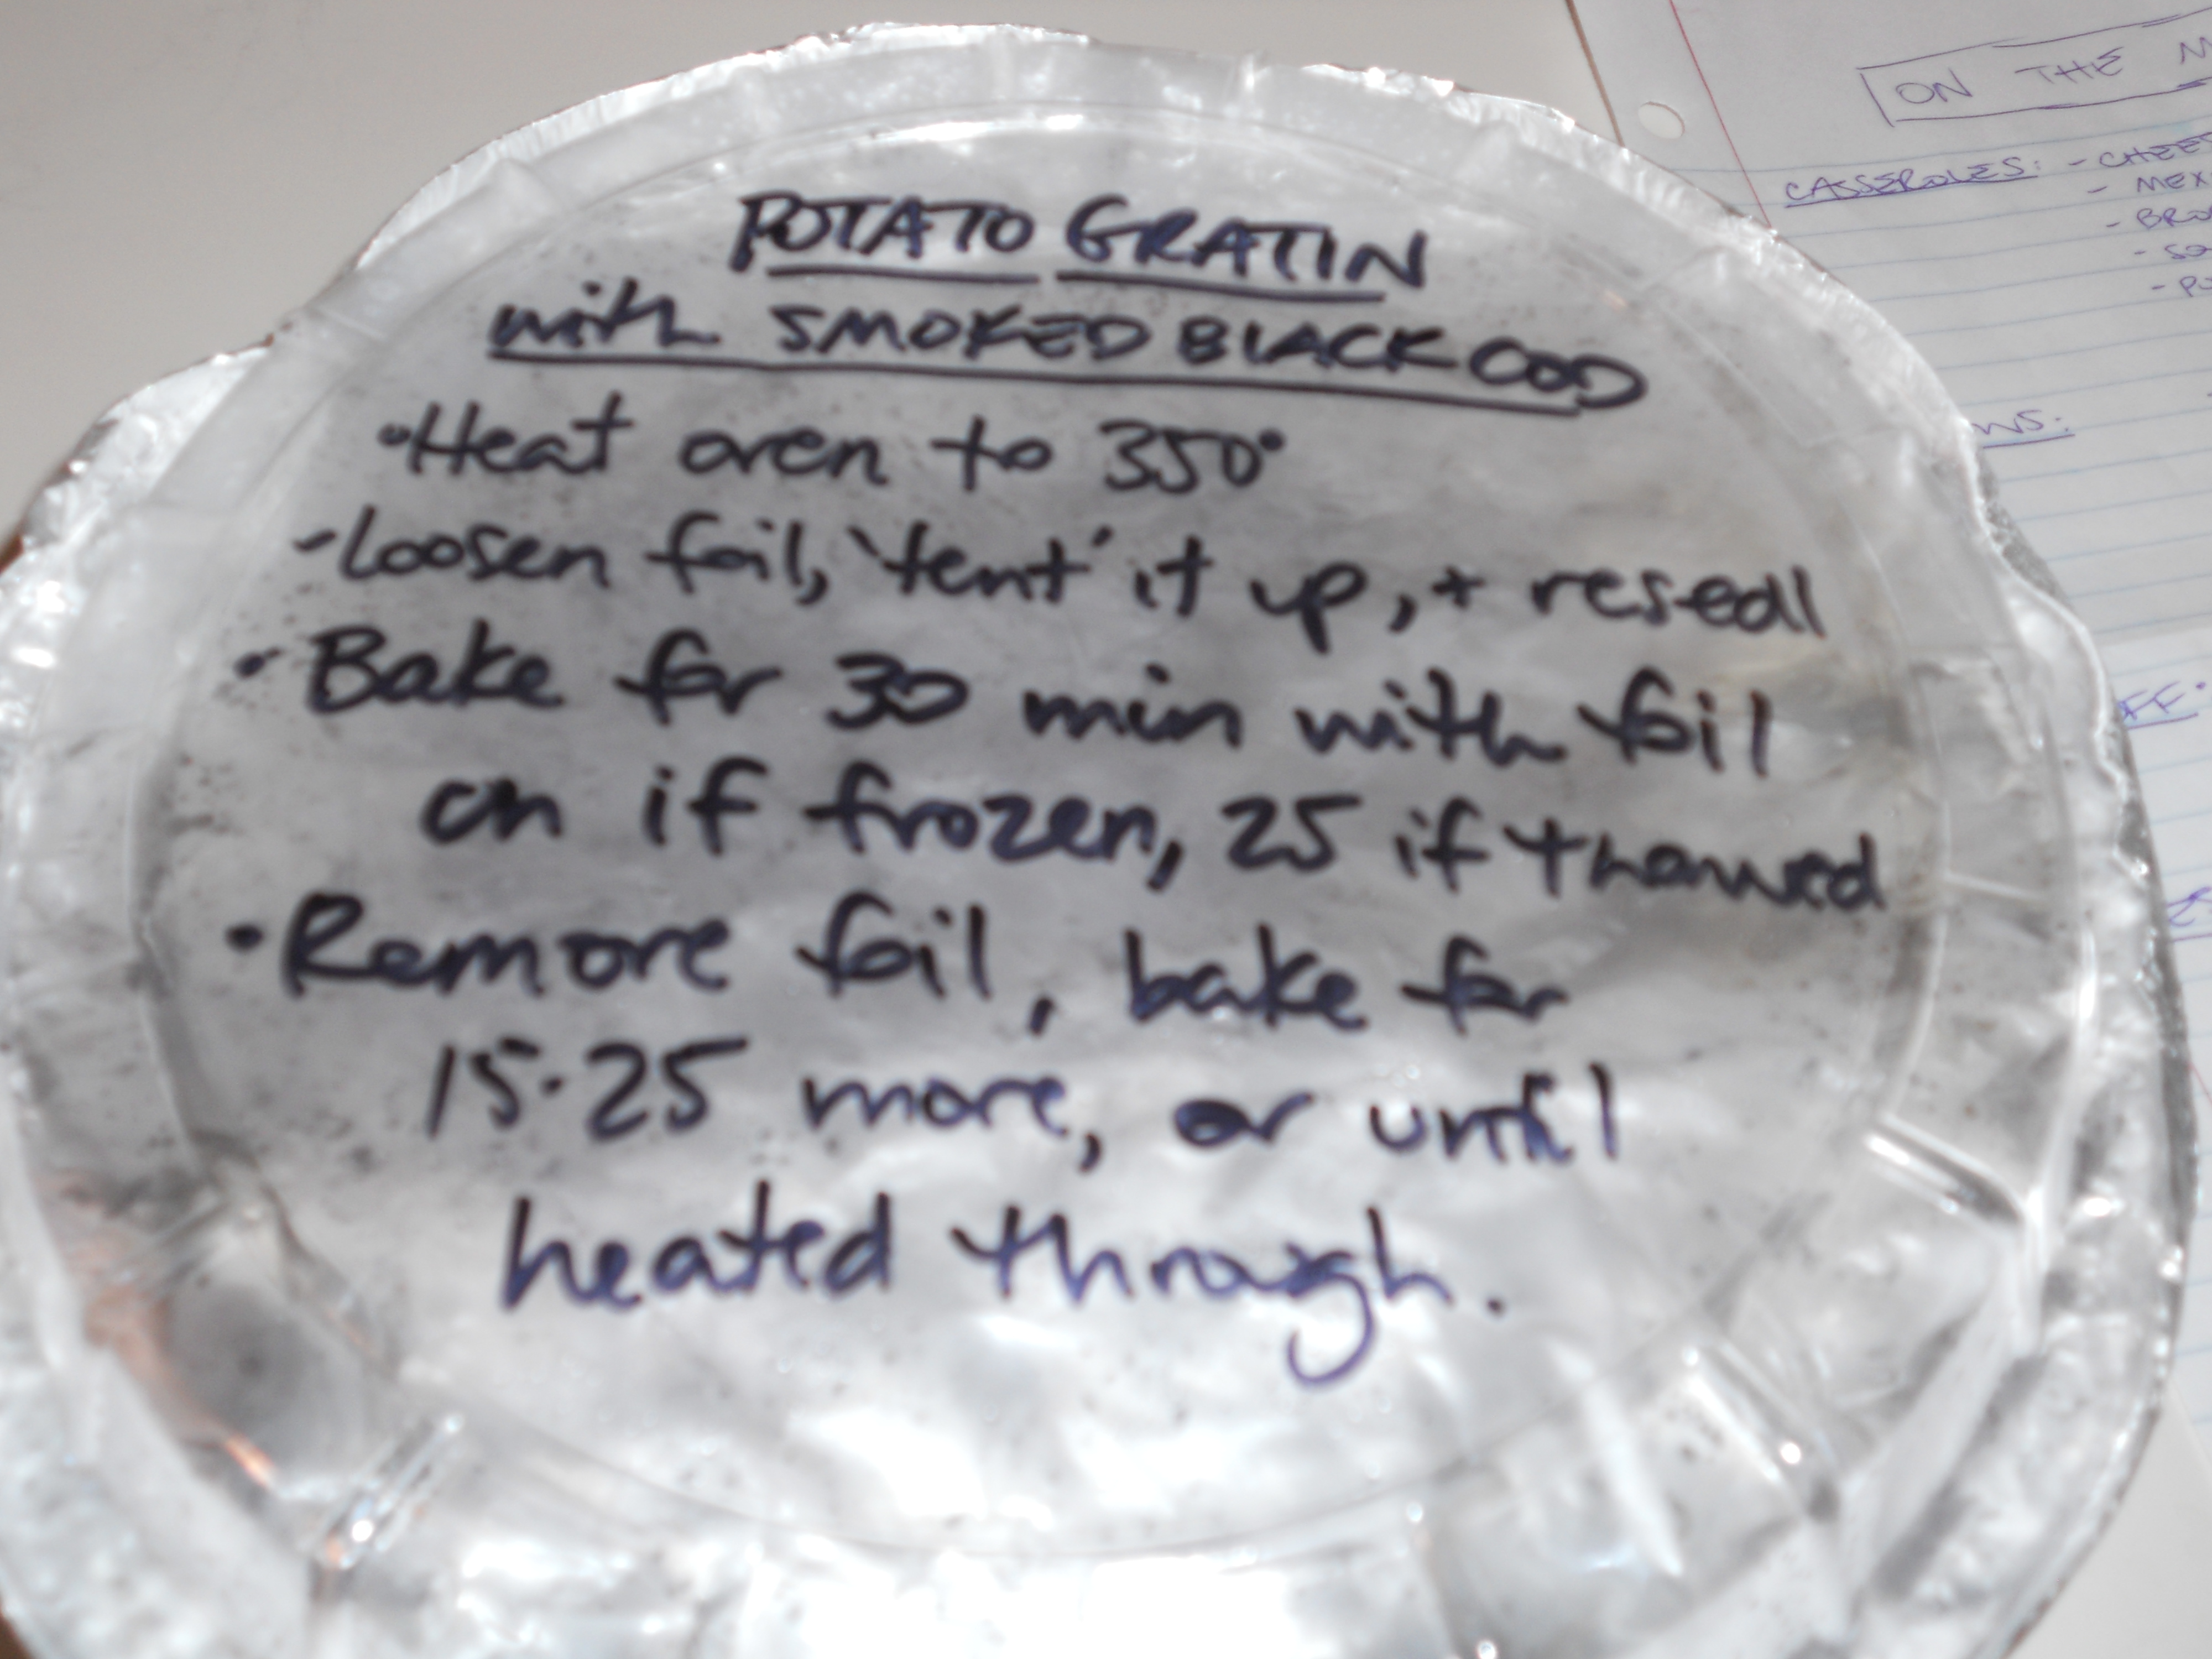 POTATO GRATIN
with SMOKED BLACK COD
•Heat oven to 350°
-Loosen foil, 'tent' it up, + reseal
• Bake for 30 min with foil
on if frozen, 25 if thawed
• Remove foil, bake for
15-25 more, or until
heated through.
ON THE
CASSEROLES:
-
-
-
-
-